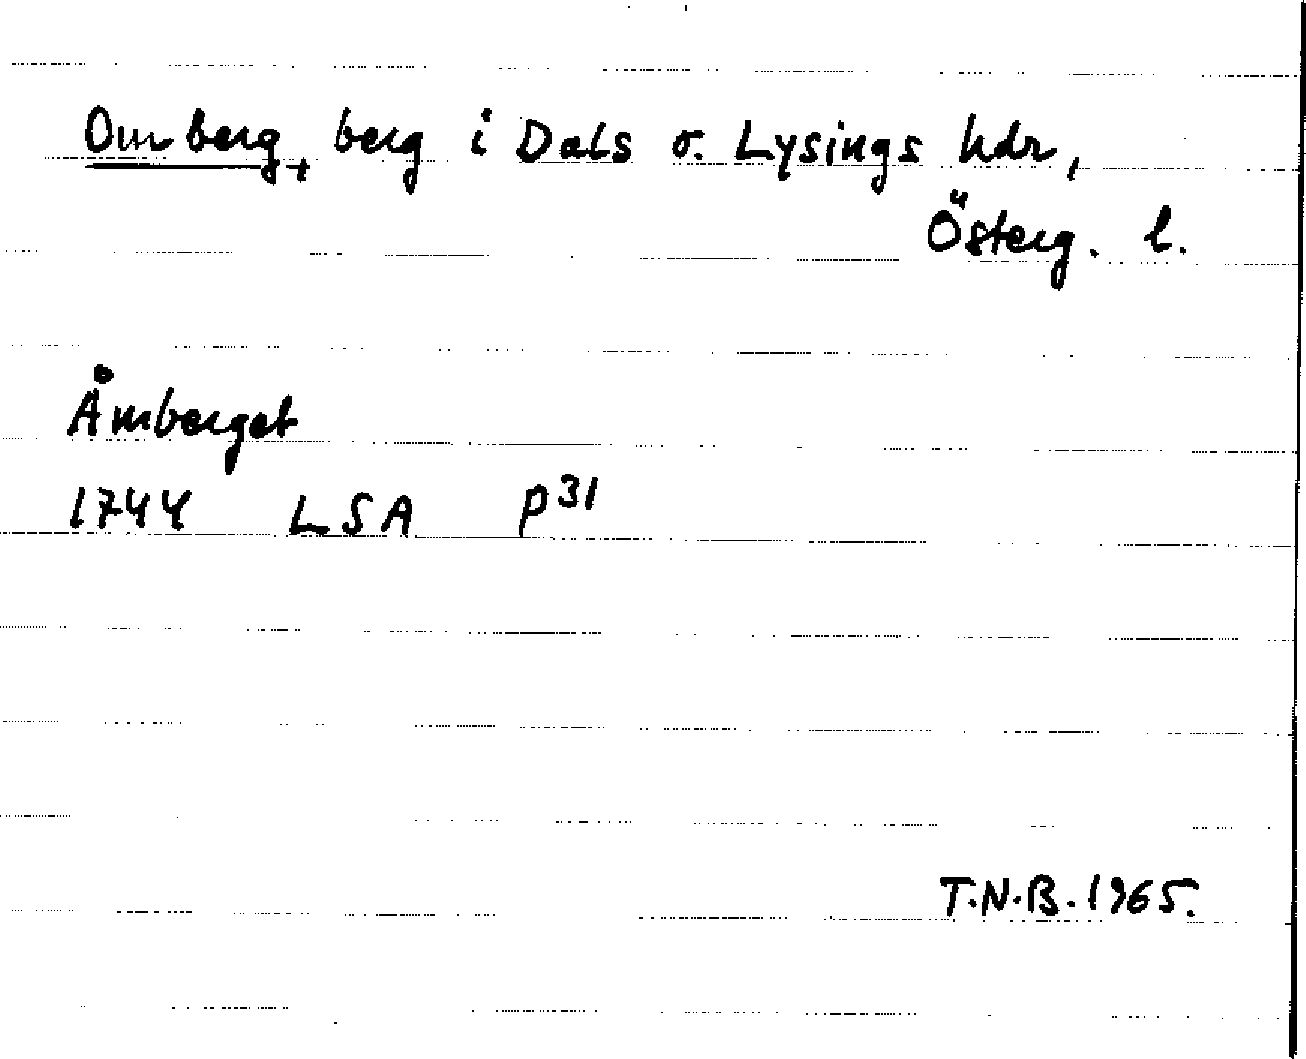 Omberg, berg i Dals o. Lysings hdr,
Österg. l.
Åmberget
1744 LSA p 31
T.N.B. 1965.